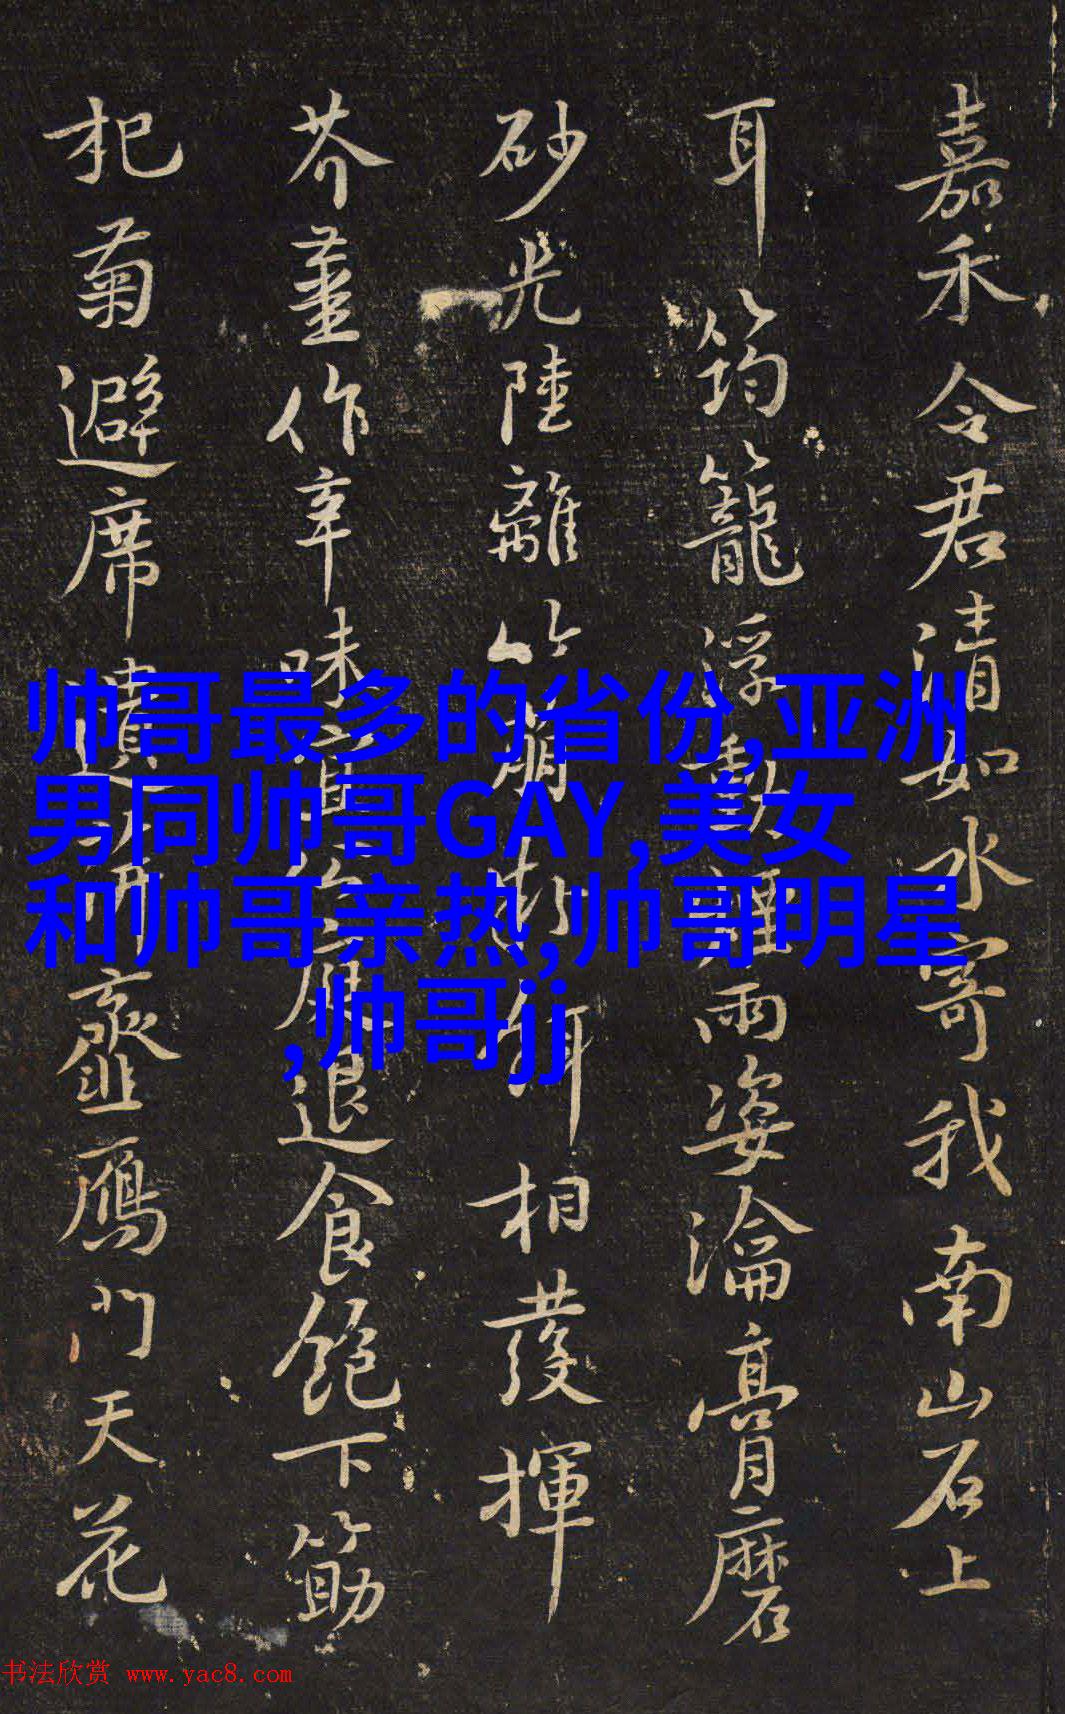 嘉禾令君清如水寄我南山石上
耳筠籠浮動煙雨姿瀹膏磨
砂光陸離筋萌相發揮
芥薑作辛味退食飽下筯
杞菊避席薺鴈門天花
帅哥最多的省份,亚洲
男同帅哥GAY,美女
和帅哥亲热,帅哥明星
,帅哥jj
书法欣赏 www.yac8.com